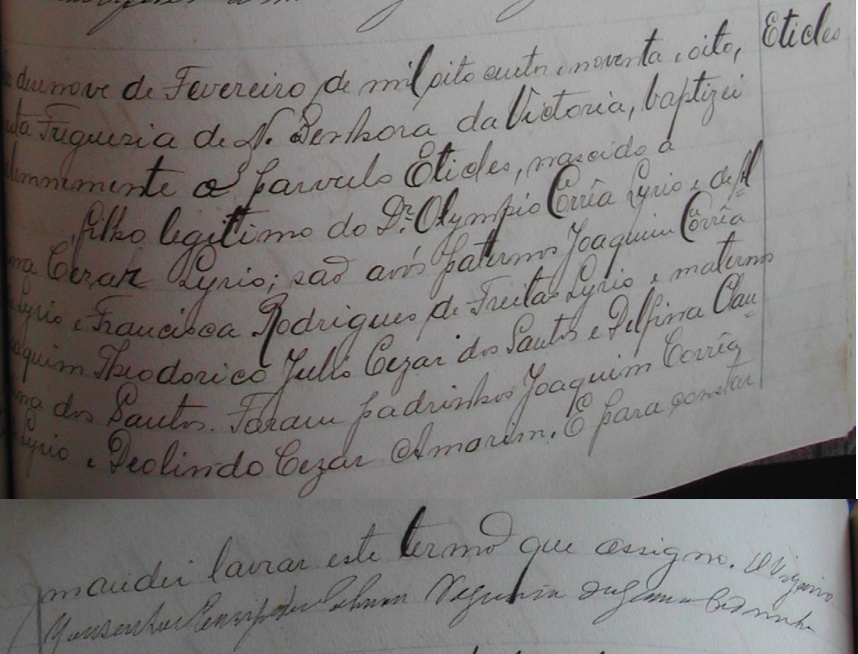 Eticles
dezenove de Fevereiro de mil oito cento e noventa e oito,
Freguezia de N. Senhora da Victoria, baptizei
solemnemente o parvulo Eticles, nascido a
filho legitimo do Dr. Olympio Corrêa Lyrio e de Al
Cezar Lyrio; são avós paternos Joaquim Corrêa
Lyrio e Francisca Rodrigues de Freitas Lyrio e maternos
Joaquim Theodorico Julio Cezar dos Santos e Delfina Clau
dos Santos. Foram padrinhos Joaquim Corrêa
Lyrio e Deolindo Cezar Amorim. E para constar
mandei lavrar este termo que assigno. O Vigario
Monsenhor